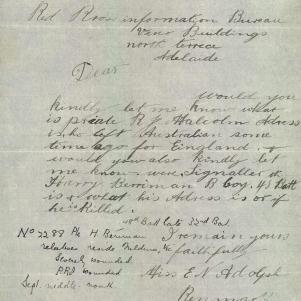 Red Cross information Bureau
Vero Buildings
north terrece
Adelaide
Dear
Would you
kindly let me know what
is private R J Malcolm Adress
is he left Australian some
time ago for England. &
would you also kindly let
me know were Signaller
Harry Berriman B Coy. 43 Batt
is & what his Adress is or if
he is Killed.
Batt late 32d Bat
No 2288 Pte H Berriman I remain yours
relatives reside Mildura, Vic faithfully
wounded
wounded Miss E. N. Adolph
Sept. middle month
Renmark